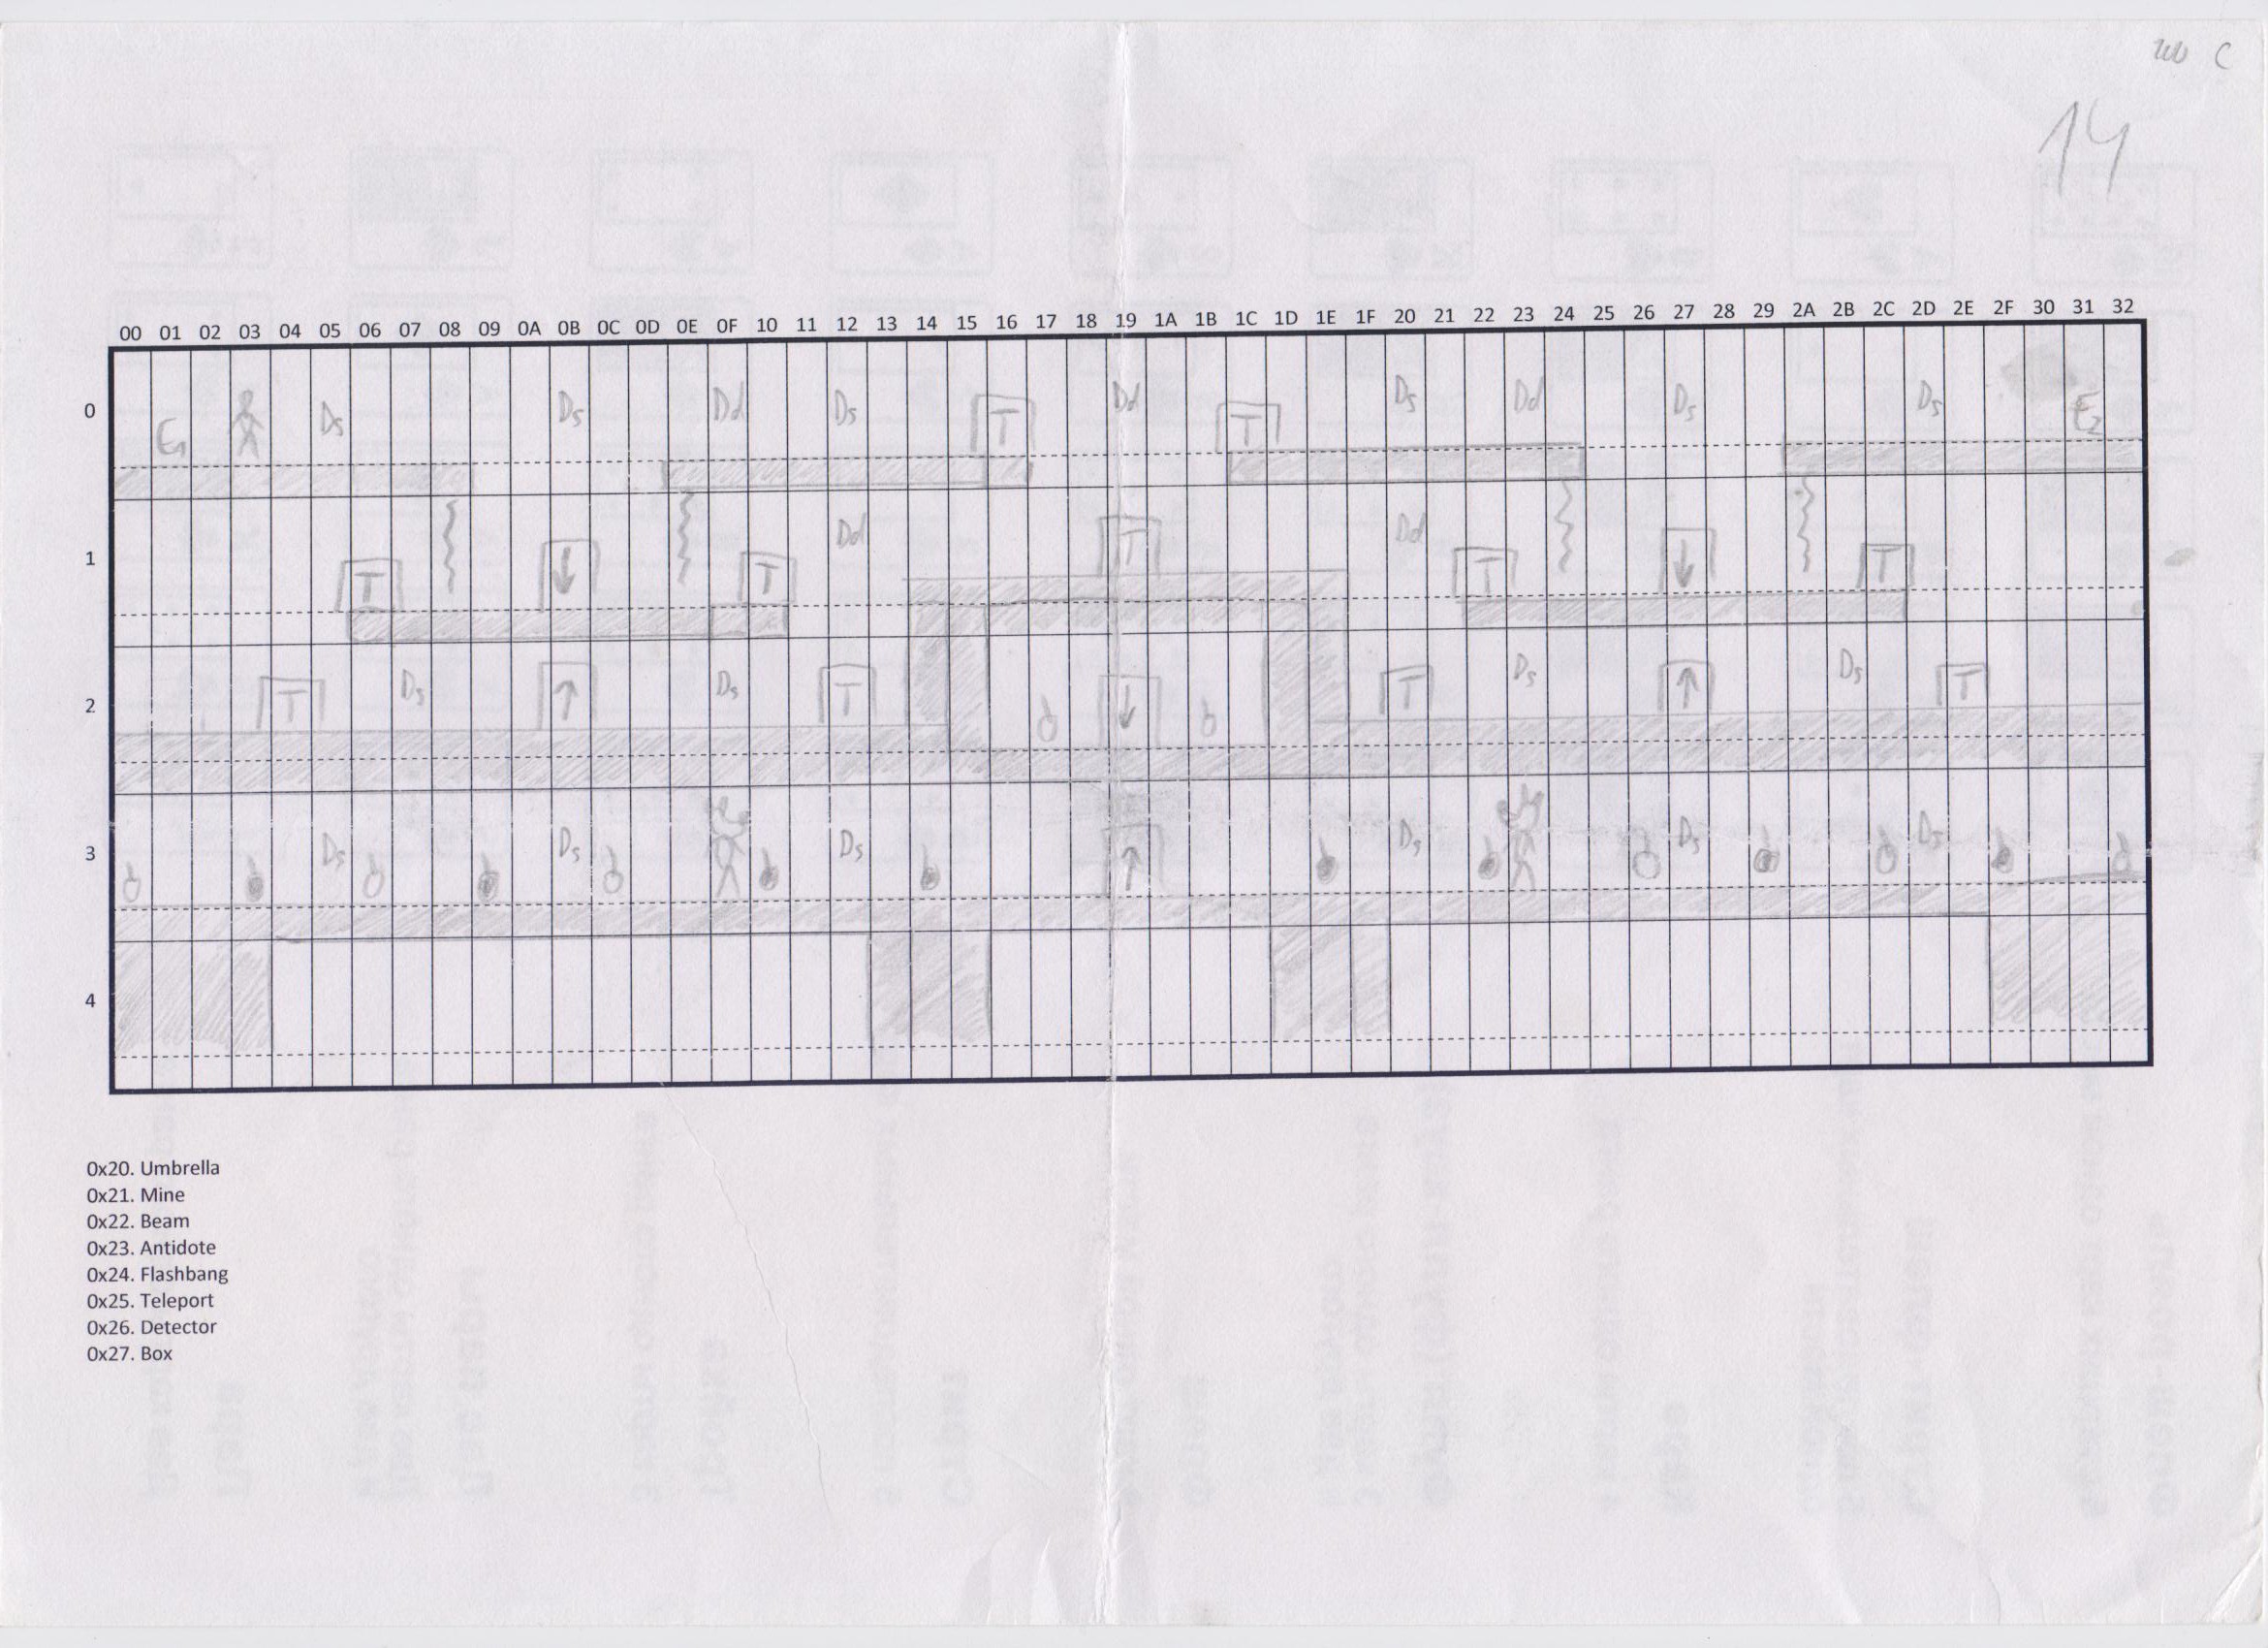 C
14
00 01 02 03 04 05 06 07 08 09 0A 0B 0C 0D 0E 0F 10 11 12 13 14 15 16 17 18 19 1A 1B 1C 1D 1E 1F 20 21 22 23 24 25 26 27 28 29 2A 2B 2C 2D 2E 2F 30 31 32
0 E1 Ds Ds Dd Ds T Dd T Ds Dd Ds Ds E2
1 T ↓ T Dd T Dd T ↓ T
2 T Ds ↑ Ds T ↓ T Ds ↑ Ds T
3 Ds Ds Ds ↑ Ds Ds Ds
4
0x20. Umbrella
0x21. Mine
0x22. Beam
0x23. Antidote
0x24. Flashbang
0x25. Teleport
0x26. Detector
0x27. Box